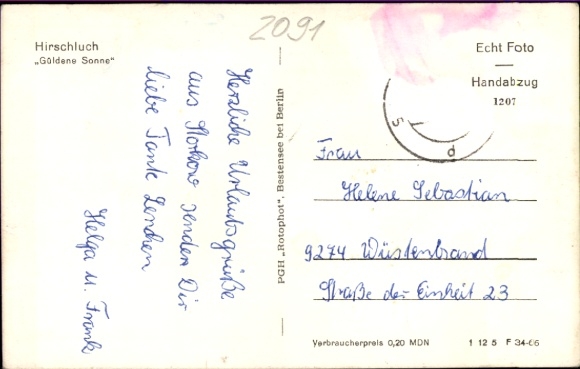 2091
Hirschluch
„Güldene Sonne“
Herzliche Urlaubsgrüße
aus Storkow senden Dir
liebe Tante Lenchen
Helga u. Frank
PGH „Rotophot“, Bestensee bei Berlin
Echt Foto
Handabzug
1207
Frau
Helene Sebastian
9274 Wüstenbrand
Straße der Einheit 23
Verbraucherpreis 0,20 MDN
1 12 5 F 34-66